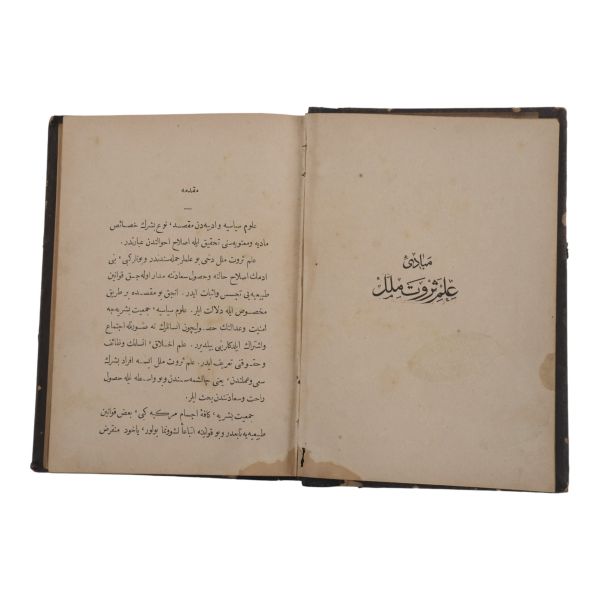 مبادئ
علم ثروت ملل
مقدمه
علوم سیاسیه و ادبیه‌دن مقصد، نوع بشرك خصائص
مادیه و معنویه‌سنی تحقیق ایله اصلاح احوالندن عبارتدر.
علم ثروت ملل دخی بو علملر جمله‌سندندر و فنلر كبی، بنی
آدمك اصلاح حالنه و حصول سعادتنه مدار اوله‌جق قوانین
طبیعیه‌یی تجسس و اثبات ایدر. آنجق بو مقصده بر طریق
مخصوص ایله دلالت ایلر. علوم سیاسیه، جمعیت بشریه‌جه
امنیت و عدالتك حصولیچون انسانلرك نه صورتله اجتماع
و اشتراك ایده‌كلرینی بیلدیرر. علم اخلاق، انسانك وظائف
و حقوقنی تعریف ایدر. علم ثروت ملل ایسه افراد بشرك
سعی و عملندن، یعنی چالشمه‌سندن و بو واسطه ایله حصول
راحت و سعادتندن بحث ایلر.
جمعیت بشریه، كافۀ اجسام مركبه كبی، بعض قوانین
طبیعیه‌یه تابعدر و بو قوانینه اتباعاً نشوونما بولور، یاخود منقرض